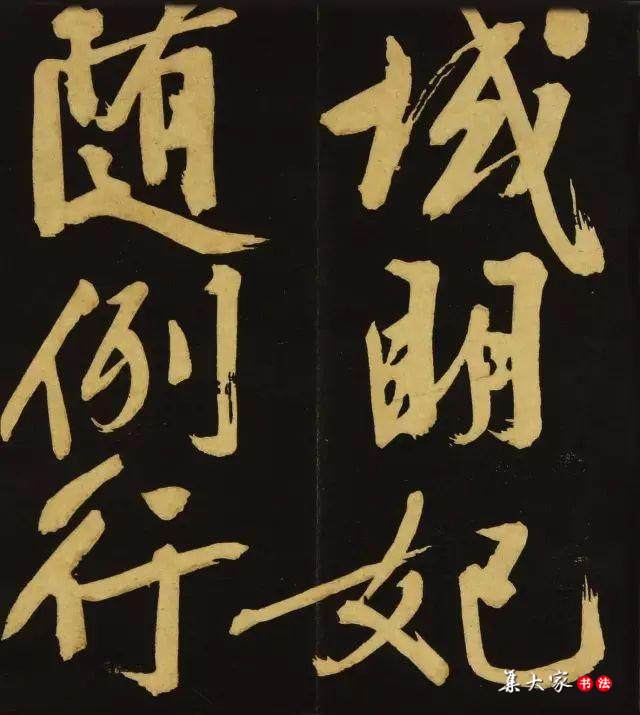 域明妃
随例行
集大家书法